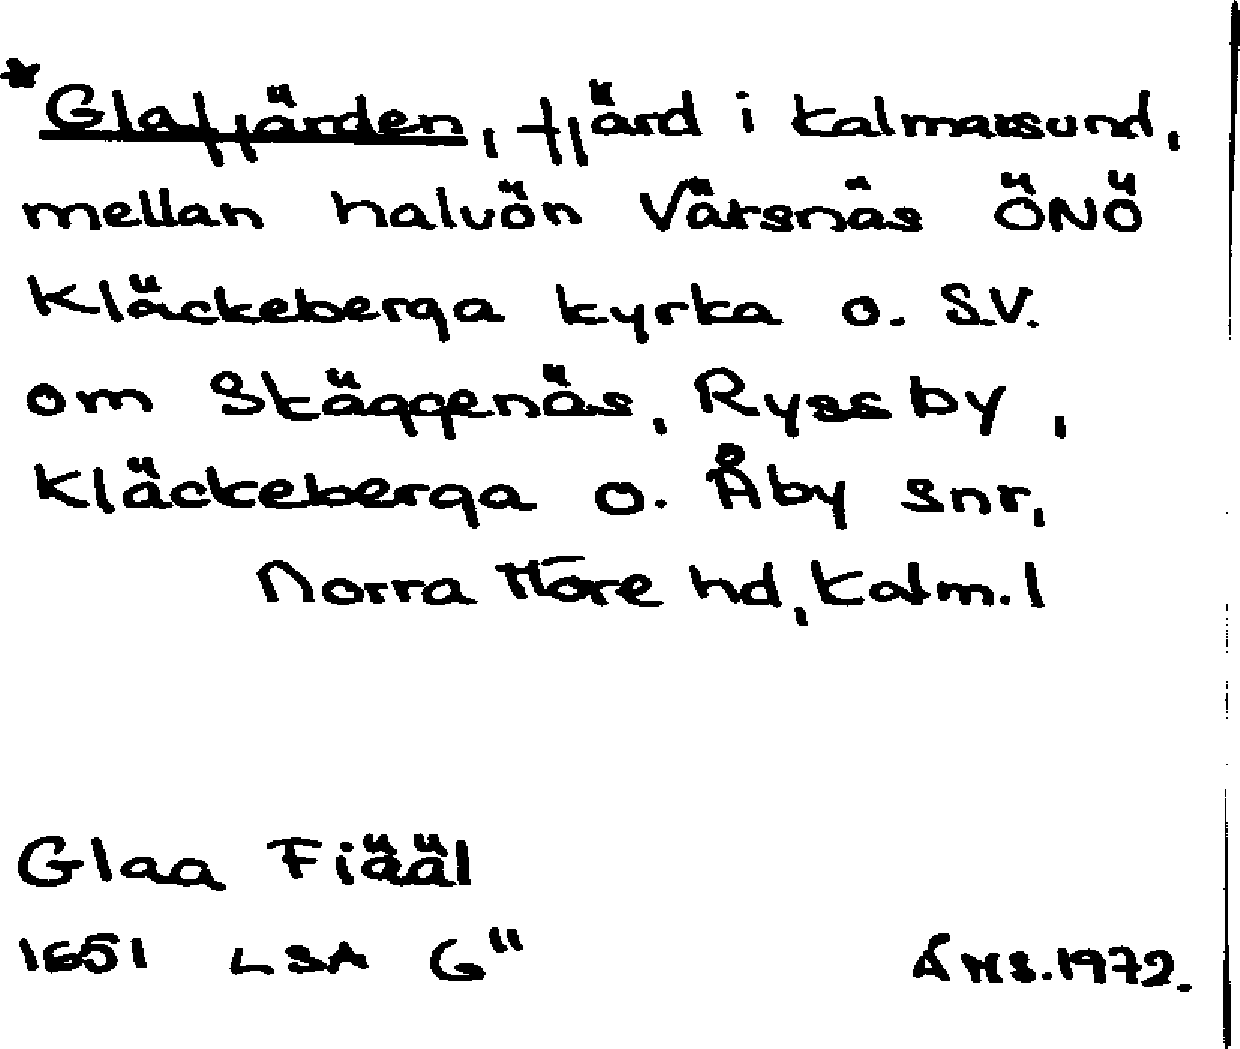 *Glafjärden, fjärd i Kalmarsund,
mellan halvön Värsnäs ÖNÖ
Kläckeberga kyrka o. S.V.
om Skäggenäs, Ryssby,
Kläckeberga o. Åby snr,
Norra Möre hd, Kalm. l
Glaa Fiääl
1651 LSA G"
ÅHS. 1972.